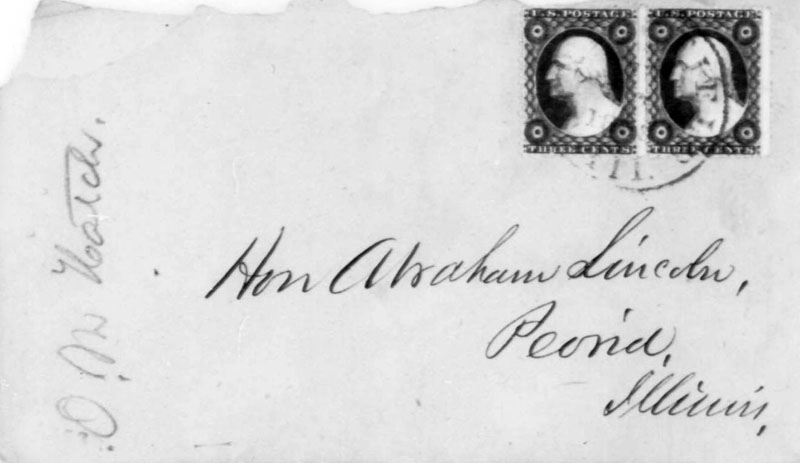 U.S. POSTAGE U.S. POSTAGE
THREE CENTS THREE CENTS
ILL.
O. M. Hatch.
Hon Abraham Lincoln,
Peoria,
Illinois,